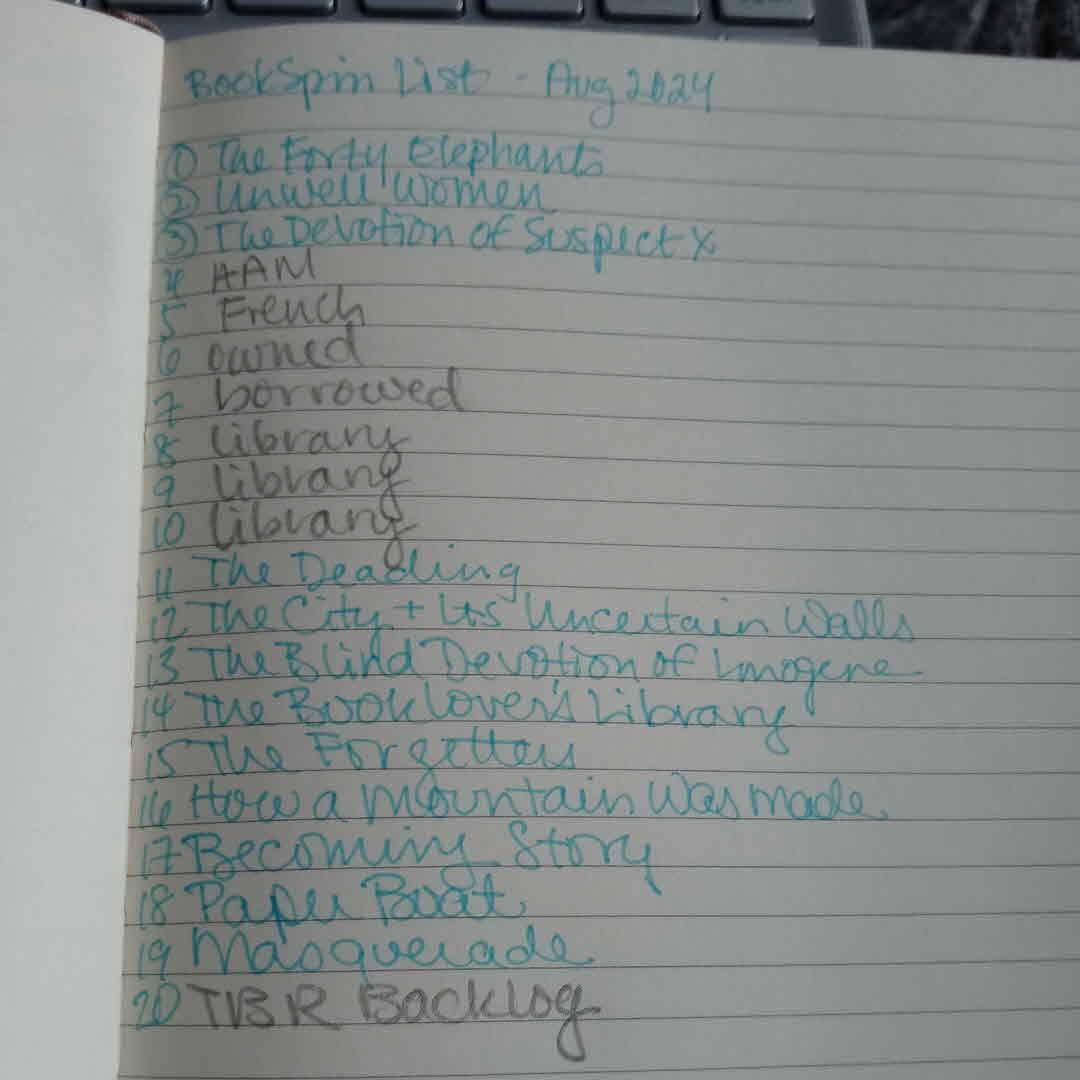 BookSpin List - Aug 2024
① The Forty Elephants
② Unwell Women
③ The Devotion of Suspect X
4 AAM
5 French
6 owned
7 borrowed
8 library
9 library
10 library
11 The Deading
12 The City + Its Uncertain Walls
13 The Blind Devotion of Imogene
14 The Booklover's Library
15 The Forgetters
16 How a Mountain Was made
17 Becoming Story
18 Paper Boat
19 Masquerade
20 TBR Backlog